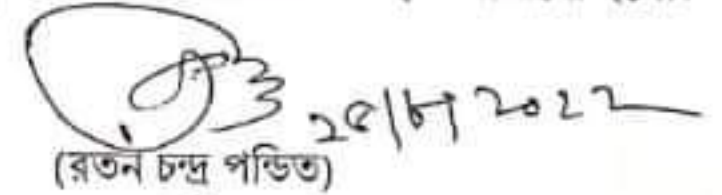 ২৫/৮/২০২২
(রতন চন্দ্র পন্ডিত)